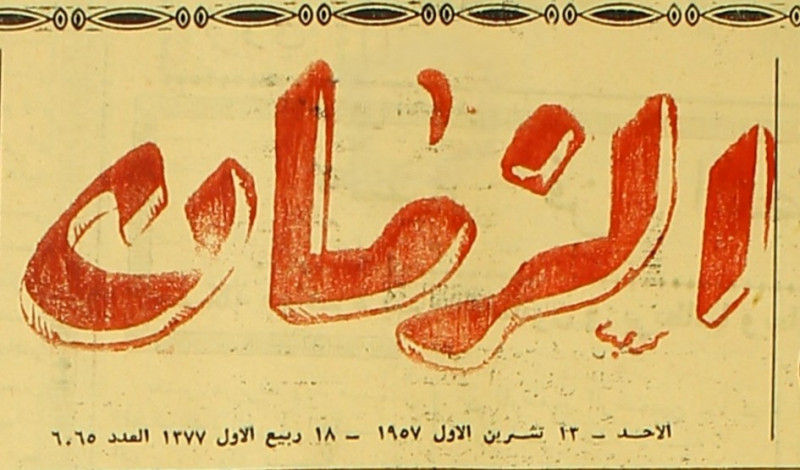 الزمان
الاحد - ١٣ تشرين الاول ١٩٥٧ - ١٨ ربيع الاول ١٣٧٧ العدد ٦٠٦٥